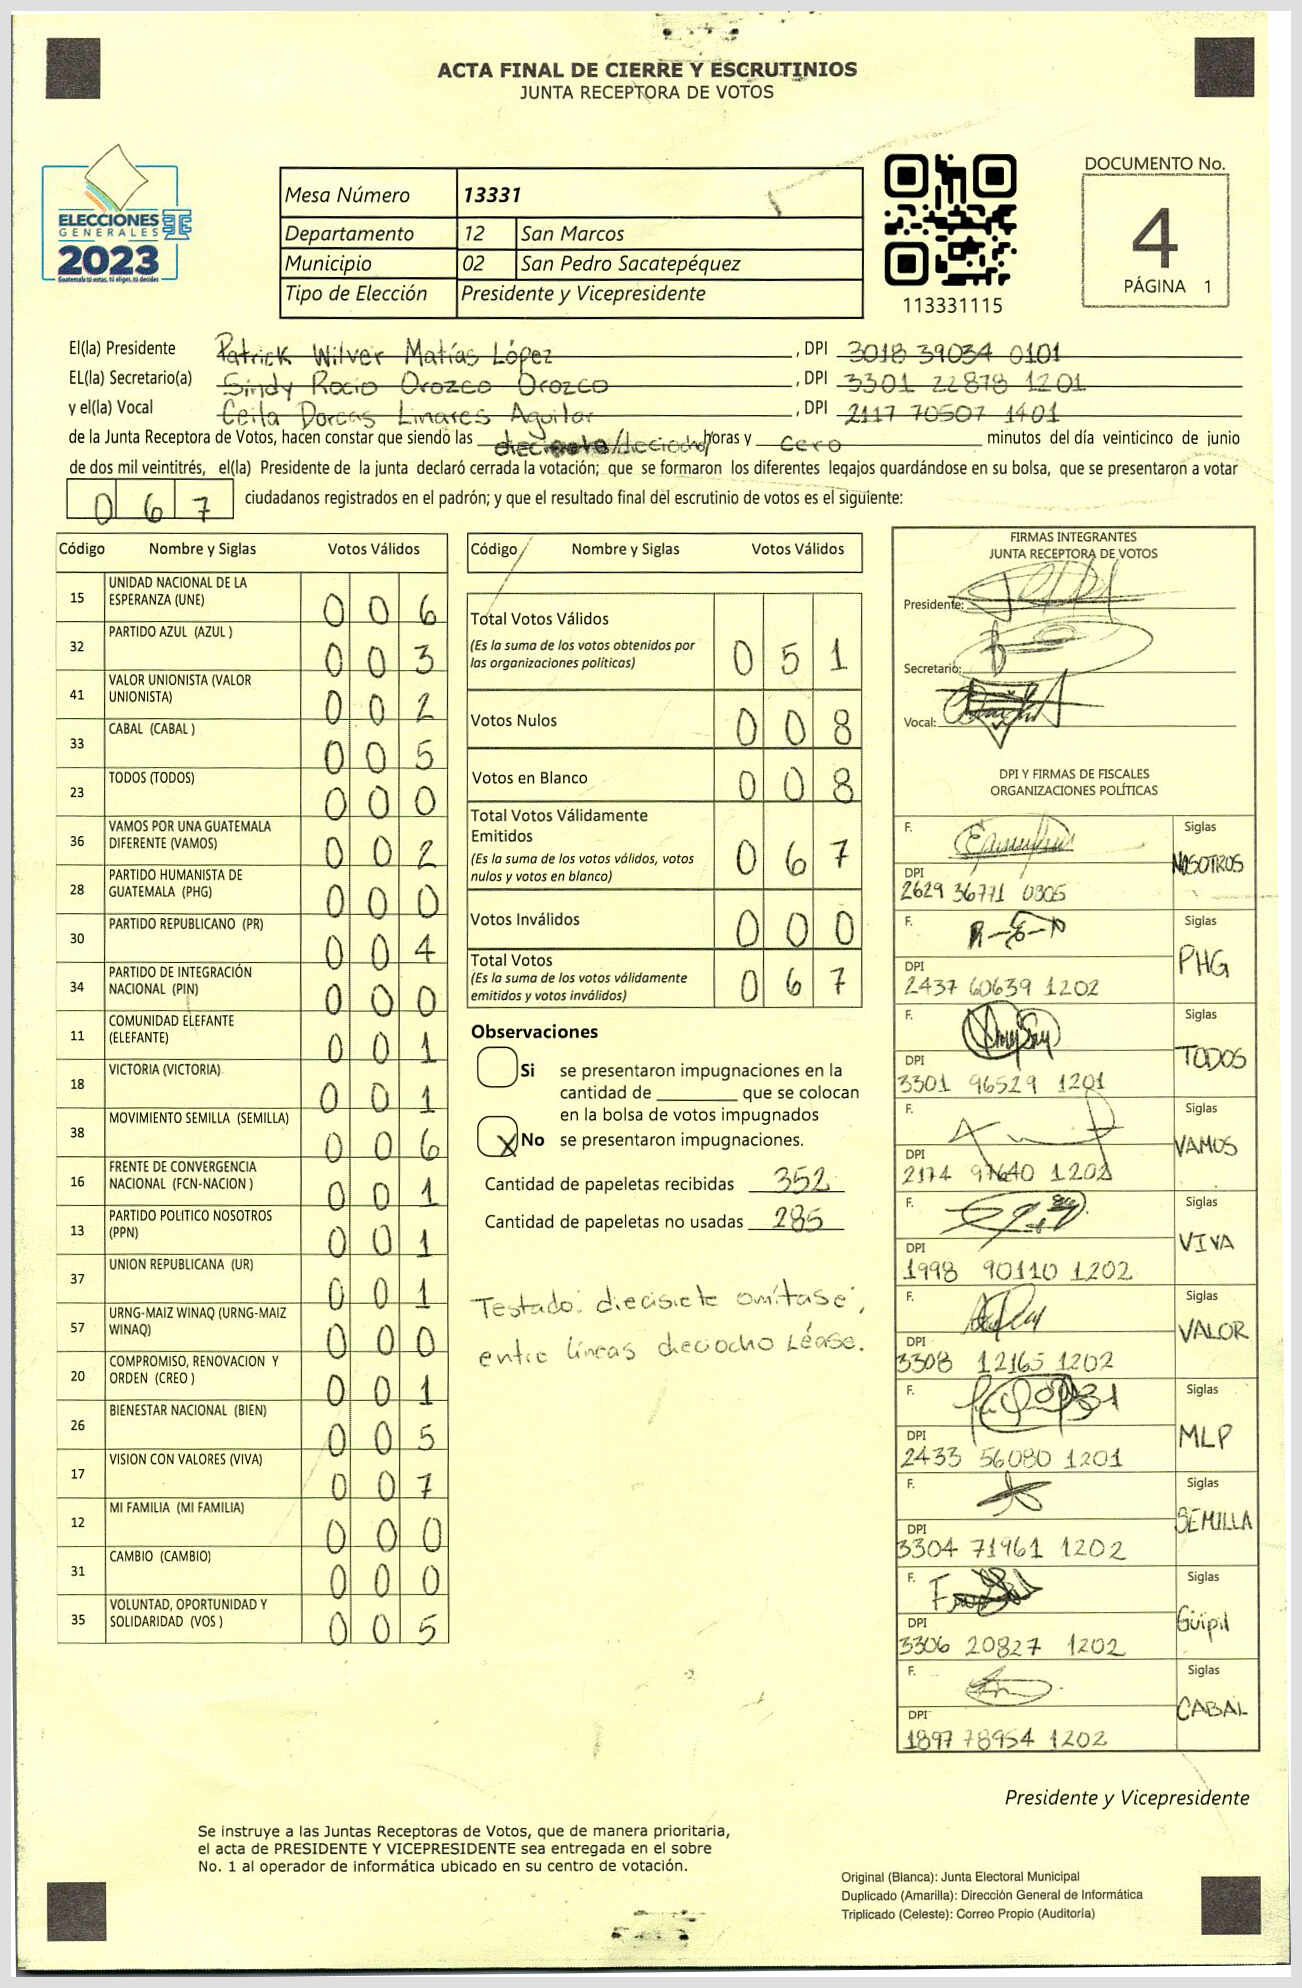 ACTA FINAL DE CIERRE Y ESCRUTINIOS
JUNTA RECEPTORA DE VOTOS
ELECCIONES
GENERALES
2023
Guatemala tú votas, tú eliges, tú decides
Mesa Número 13331
Departamento 12 San Marcos
Municipio 02 San Pedro Sacatepéquez
Tipo de Elección Presidente y Vicepresidente
113331115
DOCUMENTO No.
4
PÁGINA 1
El(la) Presidente Patrick Wilver Matías López , DPI 3018 39034 0101
EL(la) Secretario(a) Sindy Rocio Orozco Orozco , DPI 3301 22878 1201
y el(la) Vocal Ceila Dorcas Linares Aguilar , DPI 2117 70507 1401
de la Junta Receptora de Votos, hacen constar que siendo las /deciocho/ horas y cero minutos del día veinticinco de junio
de dos mil veintitrés, el(la) Presidente de la junta declaró cerrada la votación; que se formaron los diferentes legajos guardándose en su bolsa, que se presentaron a votar
0 6 7 ciudadanos registrados en el padrón; y que el resultado final del escrutinio de votos es el siguiente:
Código Nombre y Siglas Votos Válidos
15 UNIDAD NACIONAL DE LA ESPERANZA (UNE) 0 0 6
32 PARTIDO AZUL (AZUL ) 0 0 3
41 VALOR UNIONISTA (VALOR UNIONISTA) 0 0 2
33 CABAL (CABAL ) 0 0 5
23 TODOS (TODOS) 0 0 0
36 VAMOS POR UNA GUATEMALA DIFERENTE (VAMOS) 0 0 2
28 PARTIDO HUMANISTA DE GUATEMALA (PHG) 0 0 0
30 PARTIDO REPUBLICANO (PR) 0 0 4
34 PARTIDO DE INTEGRACIÓN NACIONAL (PIN) 0 0 0
11 COMUNIDAD ELEFANTE (ELEFANTE) 0 0 1
18 VICTORIA (VICTORIA) 0 0 1
38 MOVIMIENTO SEMILLA (SEMILLA) 0 0 6
16 FRENTE DE CONVERGENCIA NACIONAL (FCN-NACION ) 0 0 1
13 PARTIDO POLITICO NOSOTROS (PPN) 0 0 1
37 UNION REPUBLICANA (UR) 0 0 1
57 URNG-MAIZ WINAQ (URNG-MAIZ WINAQ) 0 0 0
20 COMPROMISO, RENOVACION Y ORDEN (CREO ) 0 0 1
26 BIENESTAR NACIONAL (BIEN) 0 0 5
17 VISION CON VALORES (VIVA) 0 0 7
12 MI FAMILIA (MI FAMILIA) 0 0 0
31 CAMBIO (CAMBIO) 0 0 0
35 VOLUNTAD, OPORTUNIDAD Y SOLIDARIDAD (VOS ) 0 0 5
Código Nombre y Siglas Votos Válidos
Total Votos Válidos 0 5 1
(Es la suma de los votos obtenidos por
las organizaciones políticas)
Votos Nulos 0 0 8
Votos en Blanco 0 0 8
Total Votos Válidamente
Emitidos 0 6 7
(Es la suma de los votos válidos, votos
nulos y votos en blanco)
Votos Inválidos 0 0 0
Total Votos 0 6 7
(Es la suma de los votos válidamente
emitidos y votos inválidos)
Observaciones
Si se presentaron impugnaciones en la
cantidad de ________ que se colocan
en la bolsa de votos impugnados
X No se presentaron impugnaciones.
Cantidad de papeletas recibidas 352
Cantidad de papeletas no usadas 285
Testado: diecisiete omítase,
entre líneas deciocho Léase.
FIRMAS INTEGRANTES
JUNTA RECEPTORA DE VOTOS
Presidente:
Secretario:
Vocal:
DPI Y FIRMAS DE FISCALES
ORGANIZACIONES POLÍTICAS
F. Siglas NOSOTROS
DPI 2629 36771 0305
F. Siglas PHG
DPI 2437 60639 1202
F. Siglas TODOS
DPI 3301 96529 1201
F. Siglas VAMOS
DPI 2174 97640 1202
F. Siglas VIVA
DPI 1998 90110 1202
F. Siglas VALOR
DPI 3308 12165 1202
F. Siglas MLP
DPI 2433 56080 1201
F. Siglas SEMILLA
DPI 3304 71961 1202
F. Siglas Güipil
DPI 3306 20827 1202
F. Siglas CABAL
DPI 1897 78954 1202
Presidente y Vicepresidente
Se instruye a las Juntas Receptoras de Votos, que de manera prioritaria,
el acta de PRESIDENTE Y VICEPRESIDENTE sea entregada en el sobre
No. 1 al operador de informática ubicado en su centro de votación.
Original (Blanca): Junta Electoral Municipal
Duplicado (Amarilla): Dirección General de Informática
Triplicado (Celeste): Correo Propio (Auditoría)